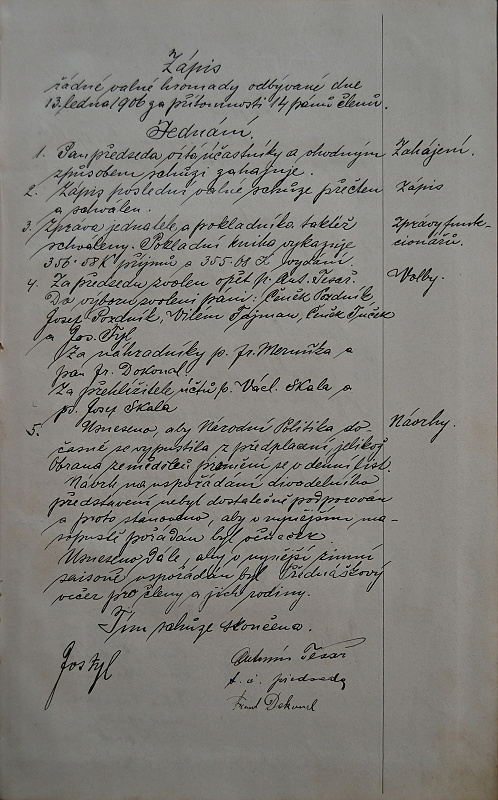 Zápis
řádné valné hromady odbývané dne
13. ledna 1906 za přítomnosti 14 pánů členů.
Jednání.
1. Pan předseda vítá účastníky a vhodným Zahájení.
způsobem schůzi zahajuje.
2. Zápis poslední valné schůze přečten Zápis
a schválen.
3. Zpráva jednatele, a pokladníka taktéž Zprávy funk-
schváleny. Pokladní kniha vykazuje cionářů.
356·58 K příjmů a 355·08 K vydání.
4. Za předsedu zvolen opět p. Ant. Tesař. Volby.
Do výboru zvoleni páni: Čeněk Pozdník,
Josef Pozdník, Vilém Tajman, Čeněk Tuček
a Jos. Tyl
Za náhradníky p. Fr. Meruňka a
pan Fr. Dokonal.
Za přehlížitele účtů p. Václ. Skala a
p. Josef Skala
5. Usneseno, aby Národní Politika do- Návrhy.
časně se vypustila z předplacní, jelikož
Obrana zemědělců promění se v denní list.
Návrh na uspořádání divadelního
představení nebyl dostatečně podporován
a proto stanoveno, aby v nynějším ma-
sopustě pořádán byl věneček.
Usneseno dále, aby v nynější zimní
saisoně uspořádán byl Přednáškový
večer pro členy a jich rodiny.
Tím schůze skončena.
Jos Tyl
Antonín Tesař
t. č. předseda
Frant Dokonal